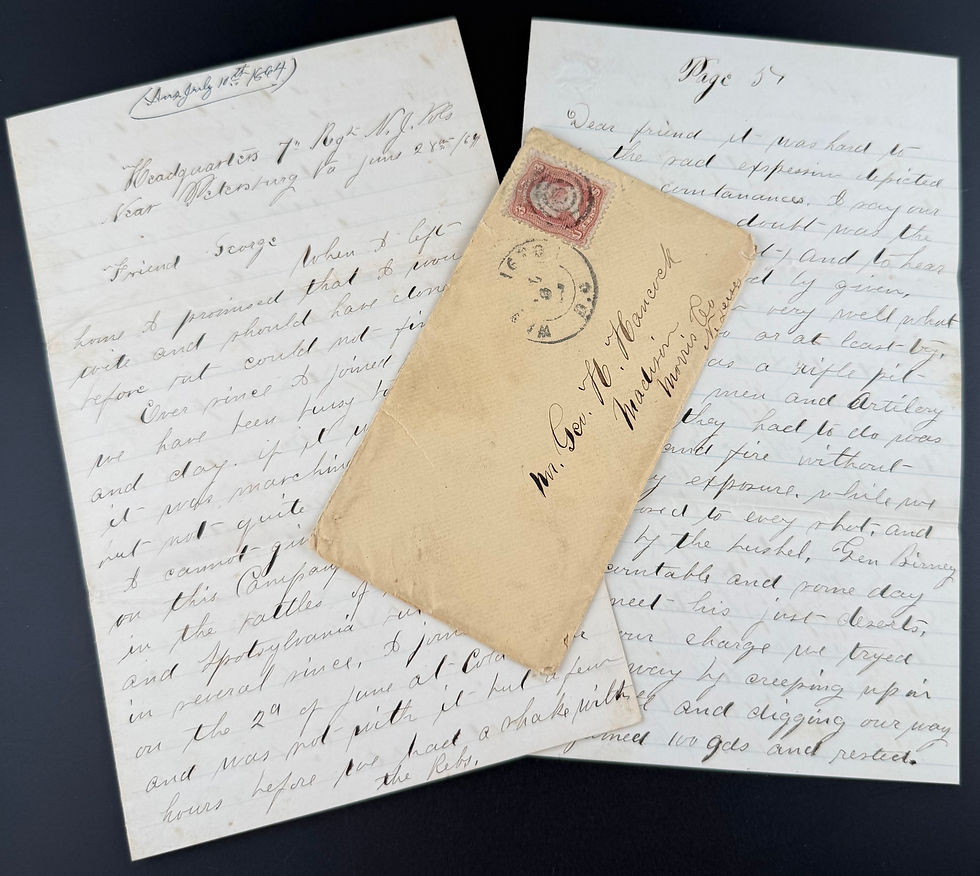 (Ans July 10th 1864)
Headquarters 7th Regt N.J. Vols
Near Petersburg Va June 28th /64
Friend George
When I left
home I promised that I wou
write and should have done
before but could not fin
Ever since I joined
we have been busy
and day. if it
it was marching
but not quite
I cannot giv
on this Campaig
in the battles of
and Spotsylvania
in several since, I join
on the 2d of June at Cold
and was not with it but a few
hours before we had a shake with
the Rebs.
Mr. Geo. H. Hancock
Madison
Morris Co
N. Jersey
Page 5th
Dear friend it was hard to
the sad expression depicted
countanances. I say our
doubt was the
and to hear
by given,
very well what
or at least by,
as a rifle pit
men and Artilery
they had to do was
and fire without
exposure. while we
osed to every shot, and
by the bushel, Gen Birney
countable and some day
meet his just deserts,
our charge we tryed
way by creeping up in
and digging our way
gained 100 yds and rested.